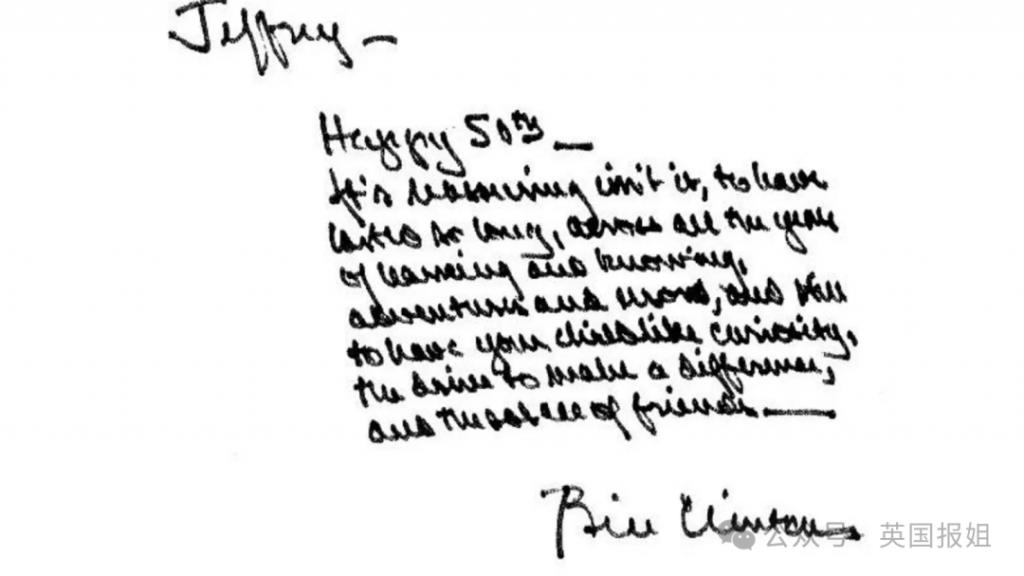 Jeffrey —
Happy 50th —
It's reassuring isn't it, to have
lasted so long, across all the years
of learning and knowing,
adventures and and still
to have your childlike curiosity,
the drive to make a difference,
and the solace of friends. —
Bill Clinton
公众号 · 英国报姐